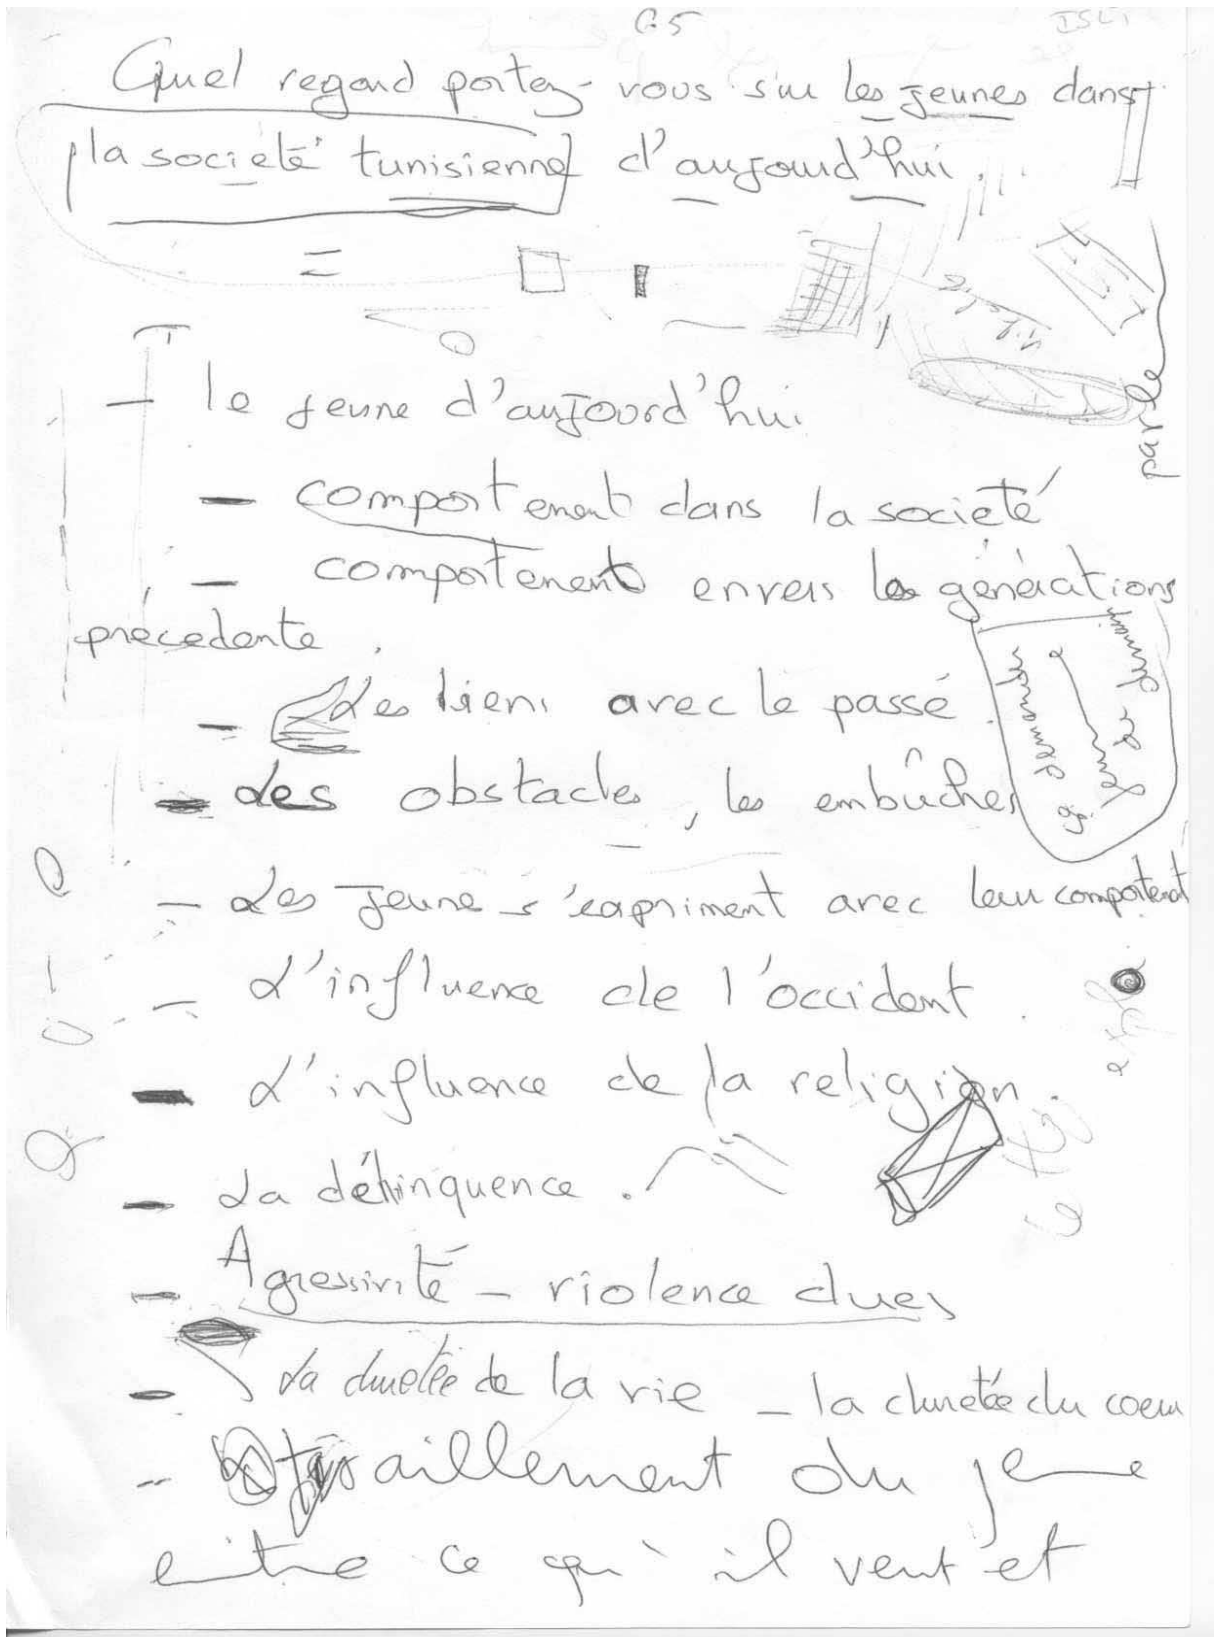 G5
ISLT
Quel regard portez-vous sur les jeunes dans
la société tunisienne d'aujourd'hui.
parle
- le jeune d'aujourd'hui
- comportement dans la société
- comportement envers les générations
précédente.
- Les liens avec le passé.
- Les obstacles, les embûches
- Les jeune s'expriment avec leur comportent
- L'influence de l'occident.
- L'influence de la religion.
- La délinquence.
- Agressivité - violence dues
- La duretée de la vie - la duretée du coeur
- tiraillement du jeune
entre ce qu'il veut et